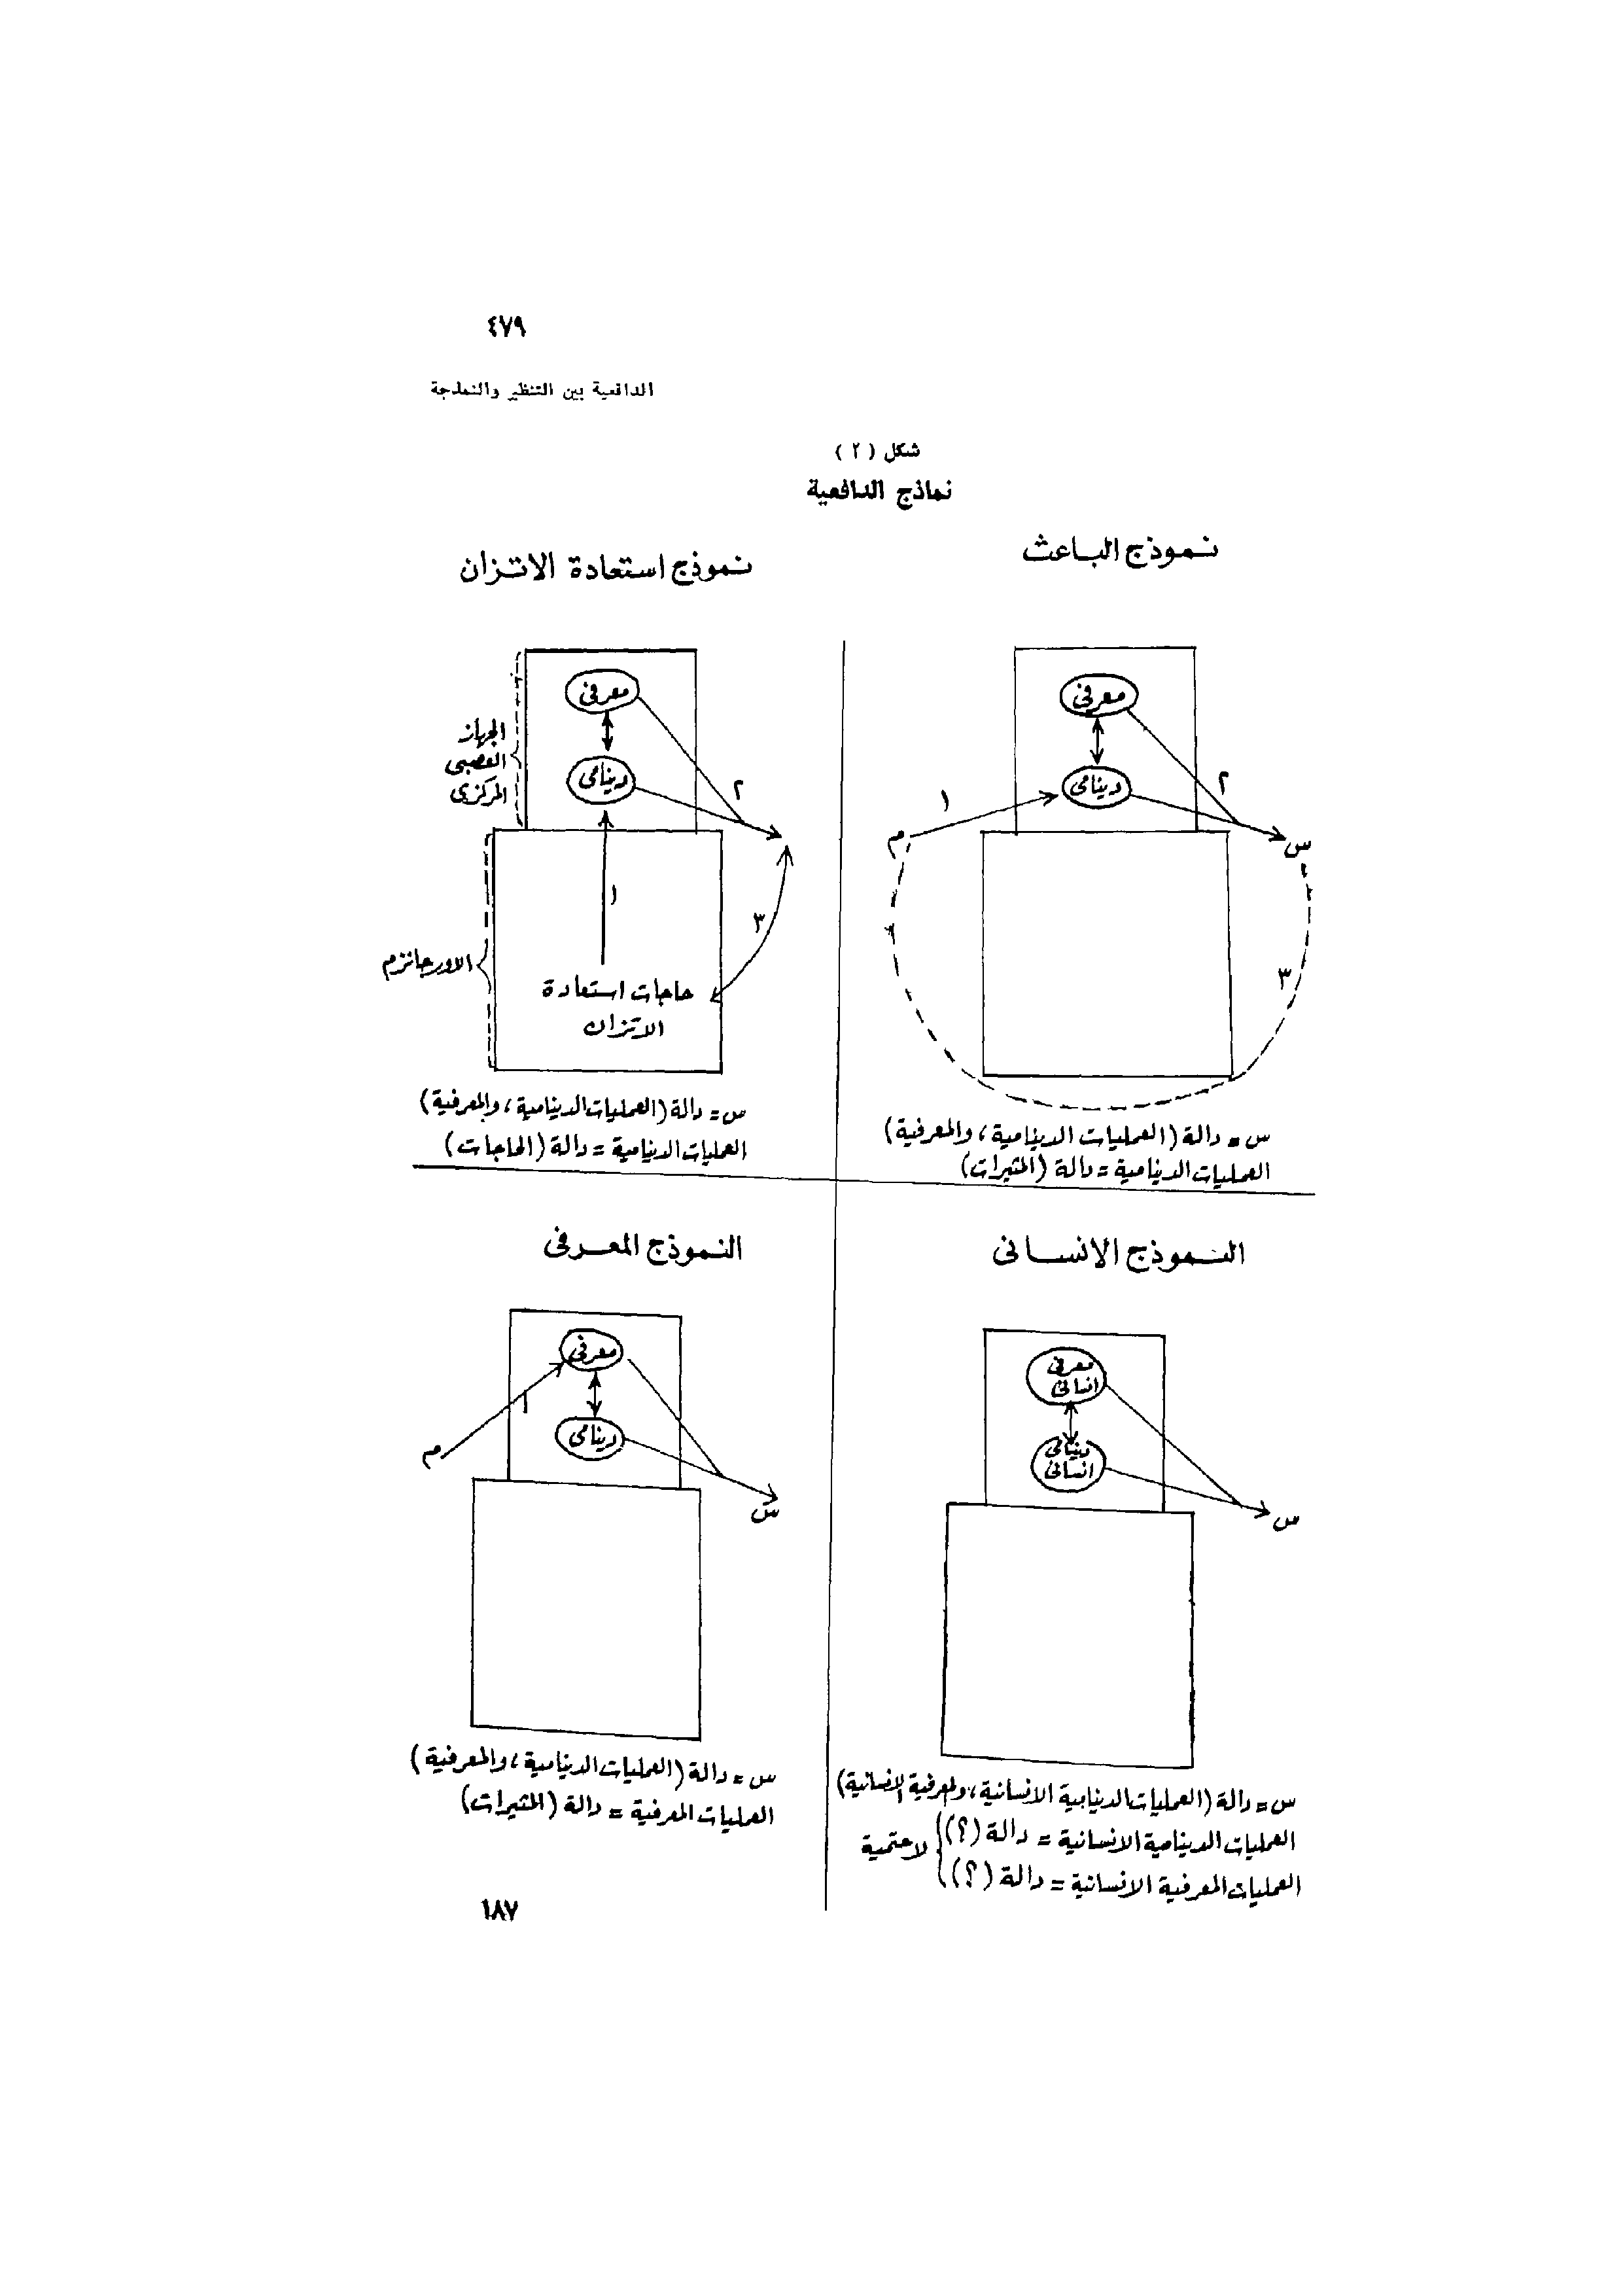 ٤٧٩
الدافعية بين التنظير والنمذجة
شكل ( ٢ )
نماذج الدافعية
نموذج الباعث
معرفى
دينامى
١
٢
م
س
٣
س = دالة (العمليات الدينامية ، والمعرفية)
العمليات الدينامية = دالة (المثيرات)
نموذج استعادة الاتزان
معرفى
دينامى
الجهاز
العصبى
المركزى
٢
١
٣
الاورجانزم
حاجات استعادة
الاتزان
س = دالة (العمليات الدينامية ، والمعرفية)
العمليات الدينامية = دالة (الحاجات)
النموذج الانسانى
معرفى
انسانى
دينامى
انسانى
س
س = دالة (العمليات الدينامية الانسانية ، والمعرفية الانسانية)
العمليات الدينامية الانسانية = دالة (؟)
العمليات المعرفية الانسانية = دالة (؟)
لاحتمية
النموذج المعرفى
معرفى
دينامى
١
م
س
س = دالة (العمليات الدينامية ، والمعرفية)
العمليات المعرفية = دالة (المثيرات)
١٨٧